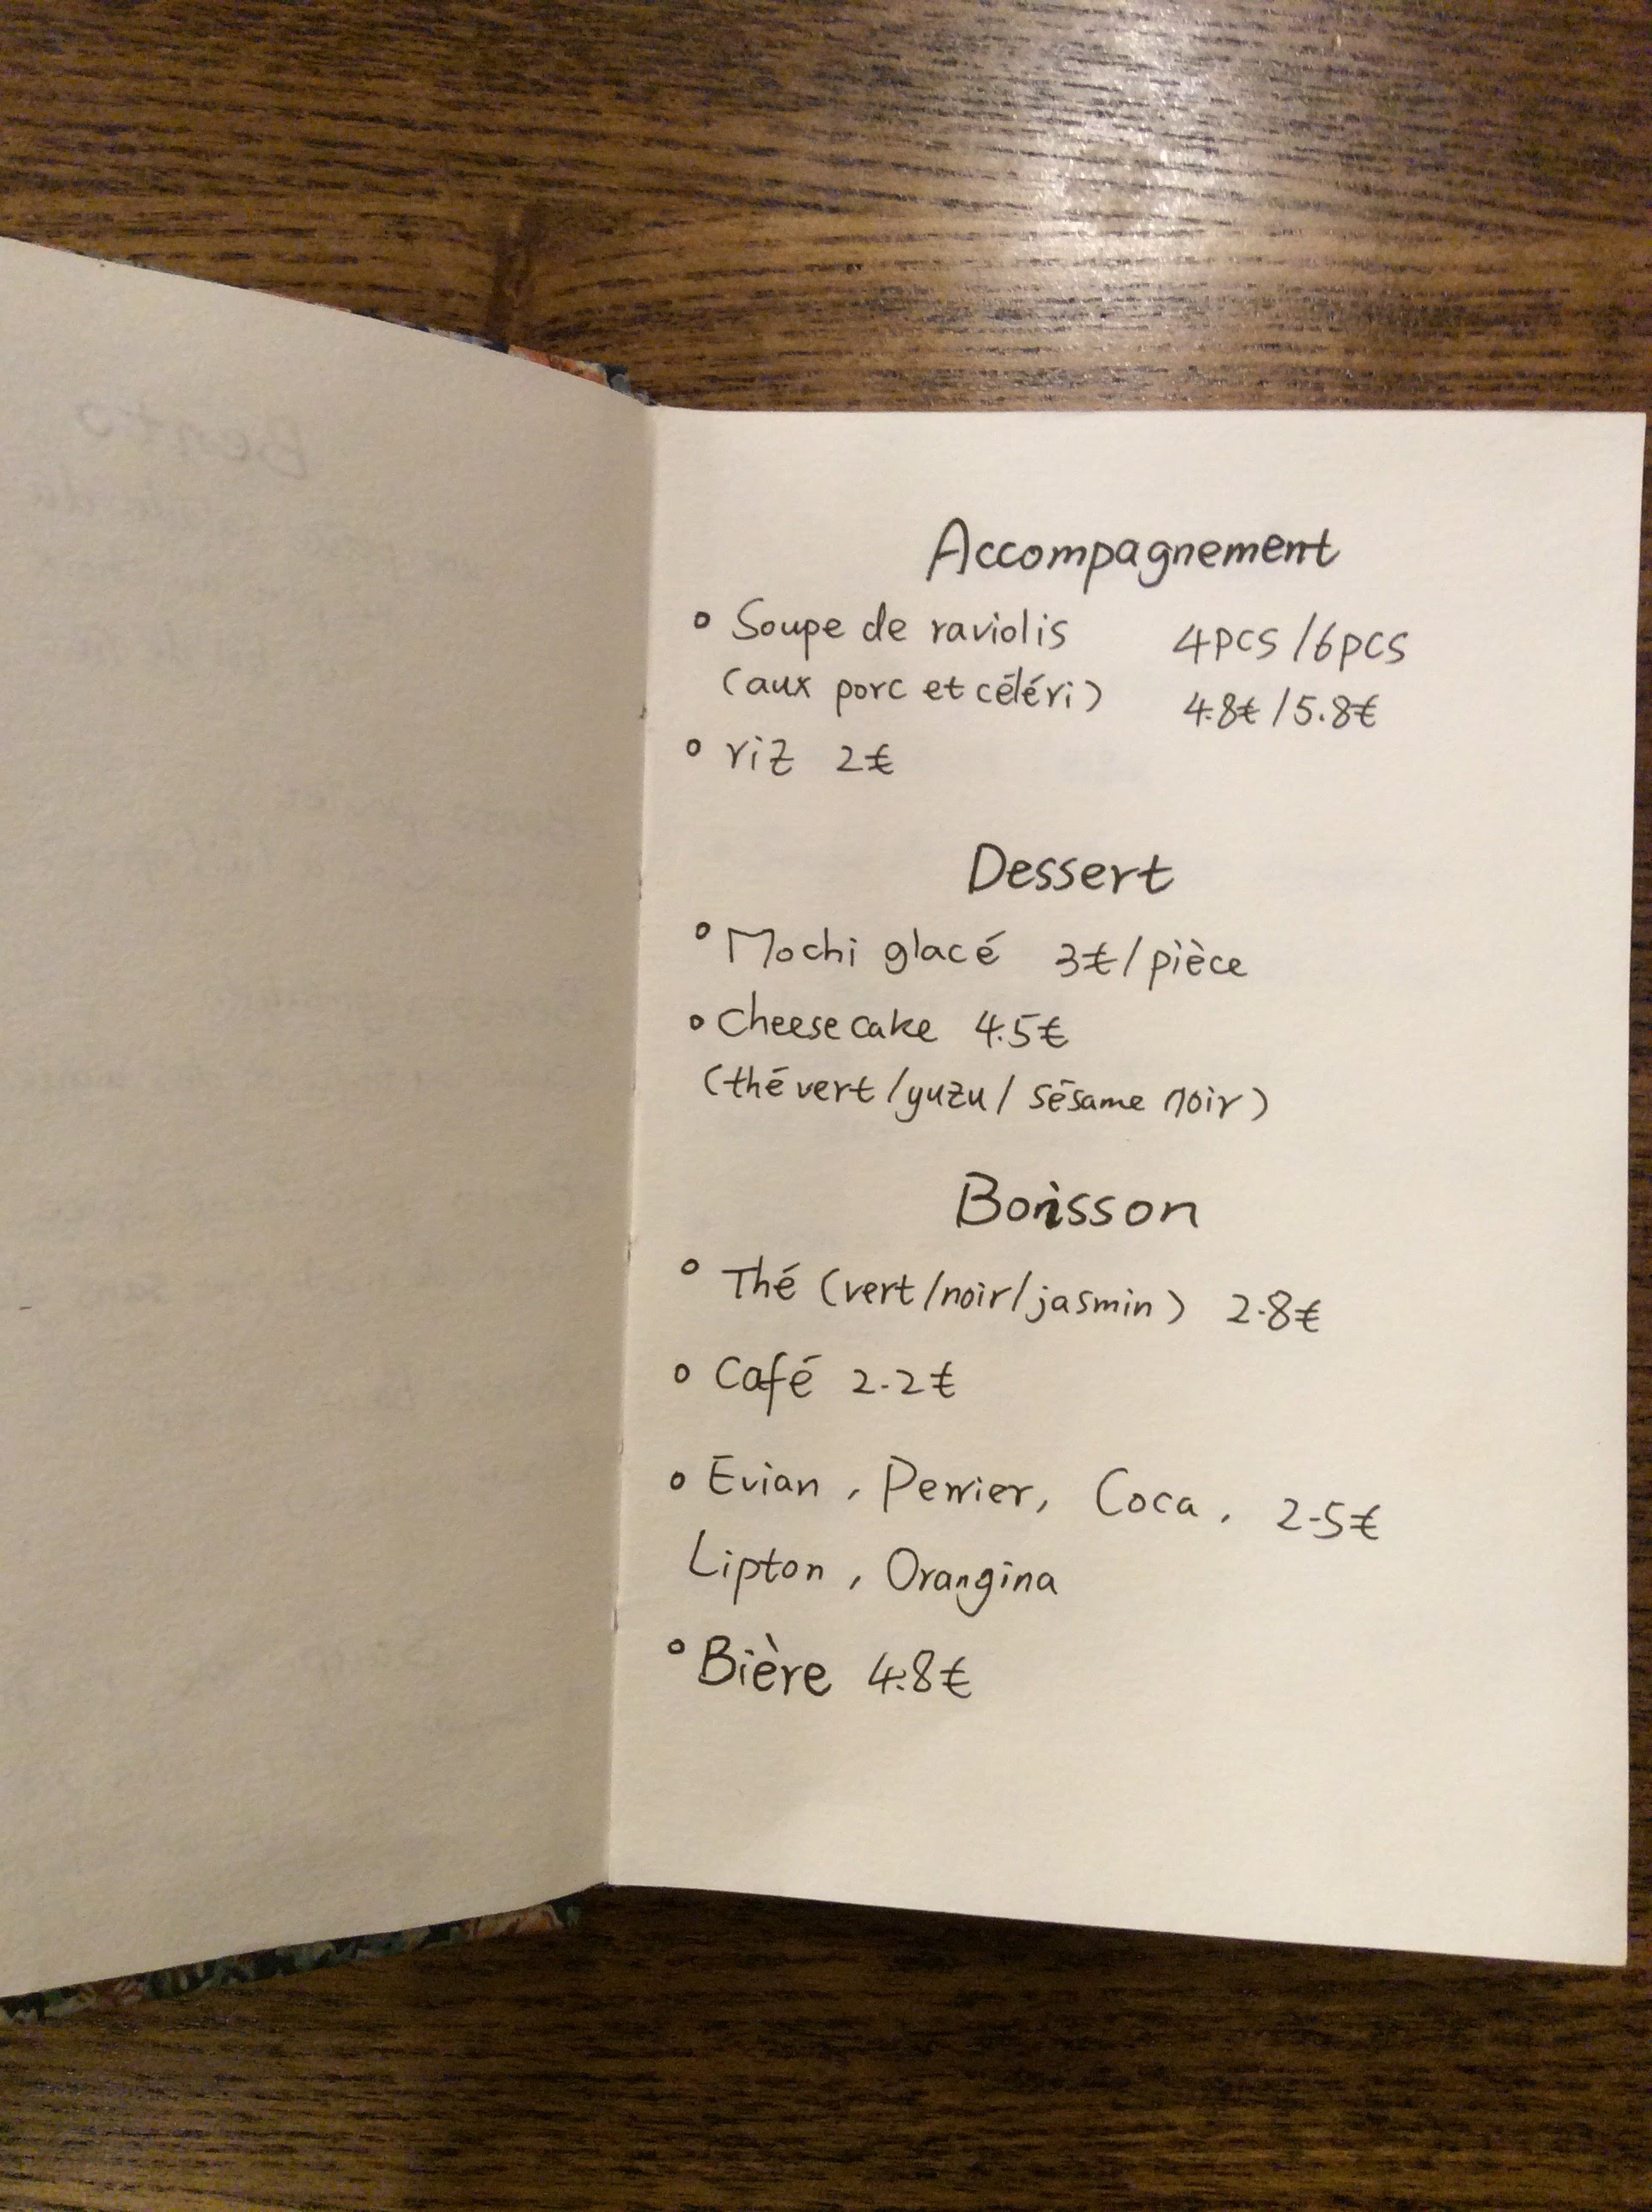 Accompagnement
° Soupe de raviolis 4pcs /6pcs
(aux porc et céléri) 4.8€ /5.8€
° riz 2€
Dessert
° Mochi glacé 3€/ pièce
° cheese cake 4.5€
(thé vert /yuzu/ sésame noir)
Boisson
° Thé (vert/noir/jasmin) 2.8€
° Café 2.2€
° Evian, Perrier, Coca, 2.5€
Lipton, Orangina
° Bière 4.8€